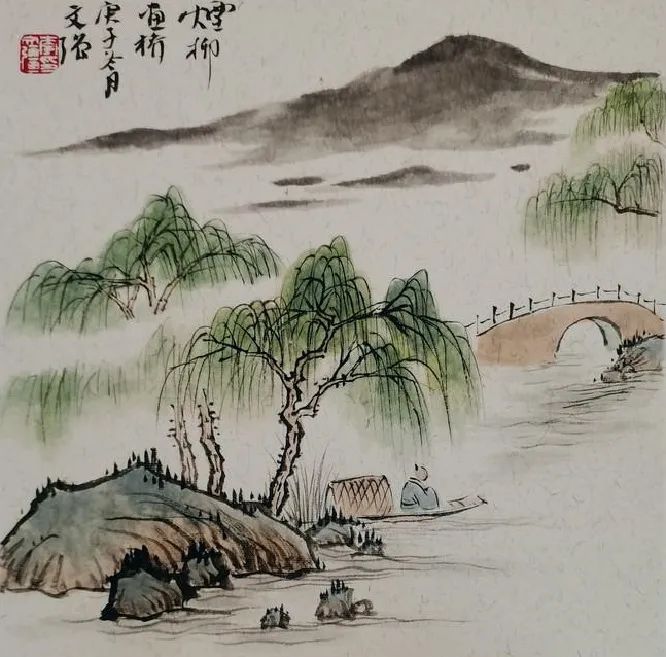 煙柳
画桥
庚子冬月
文